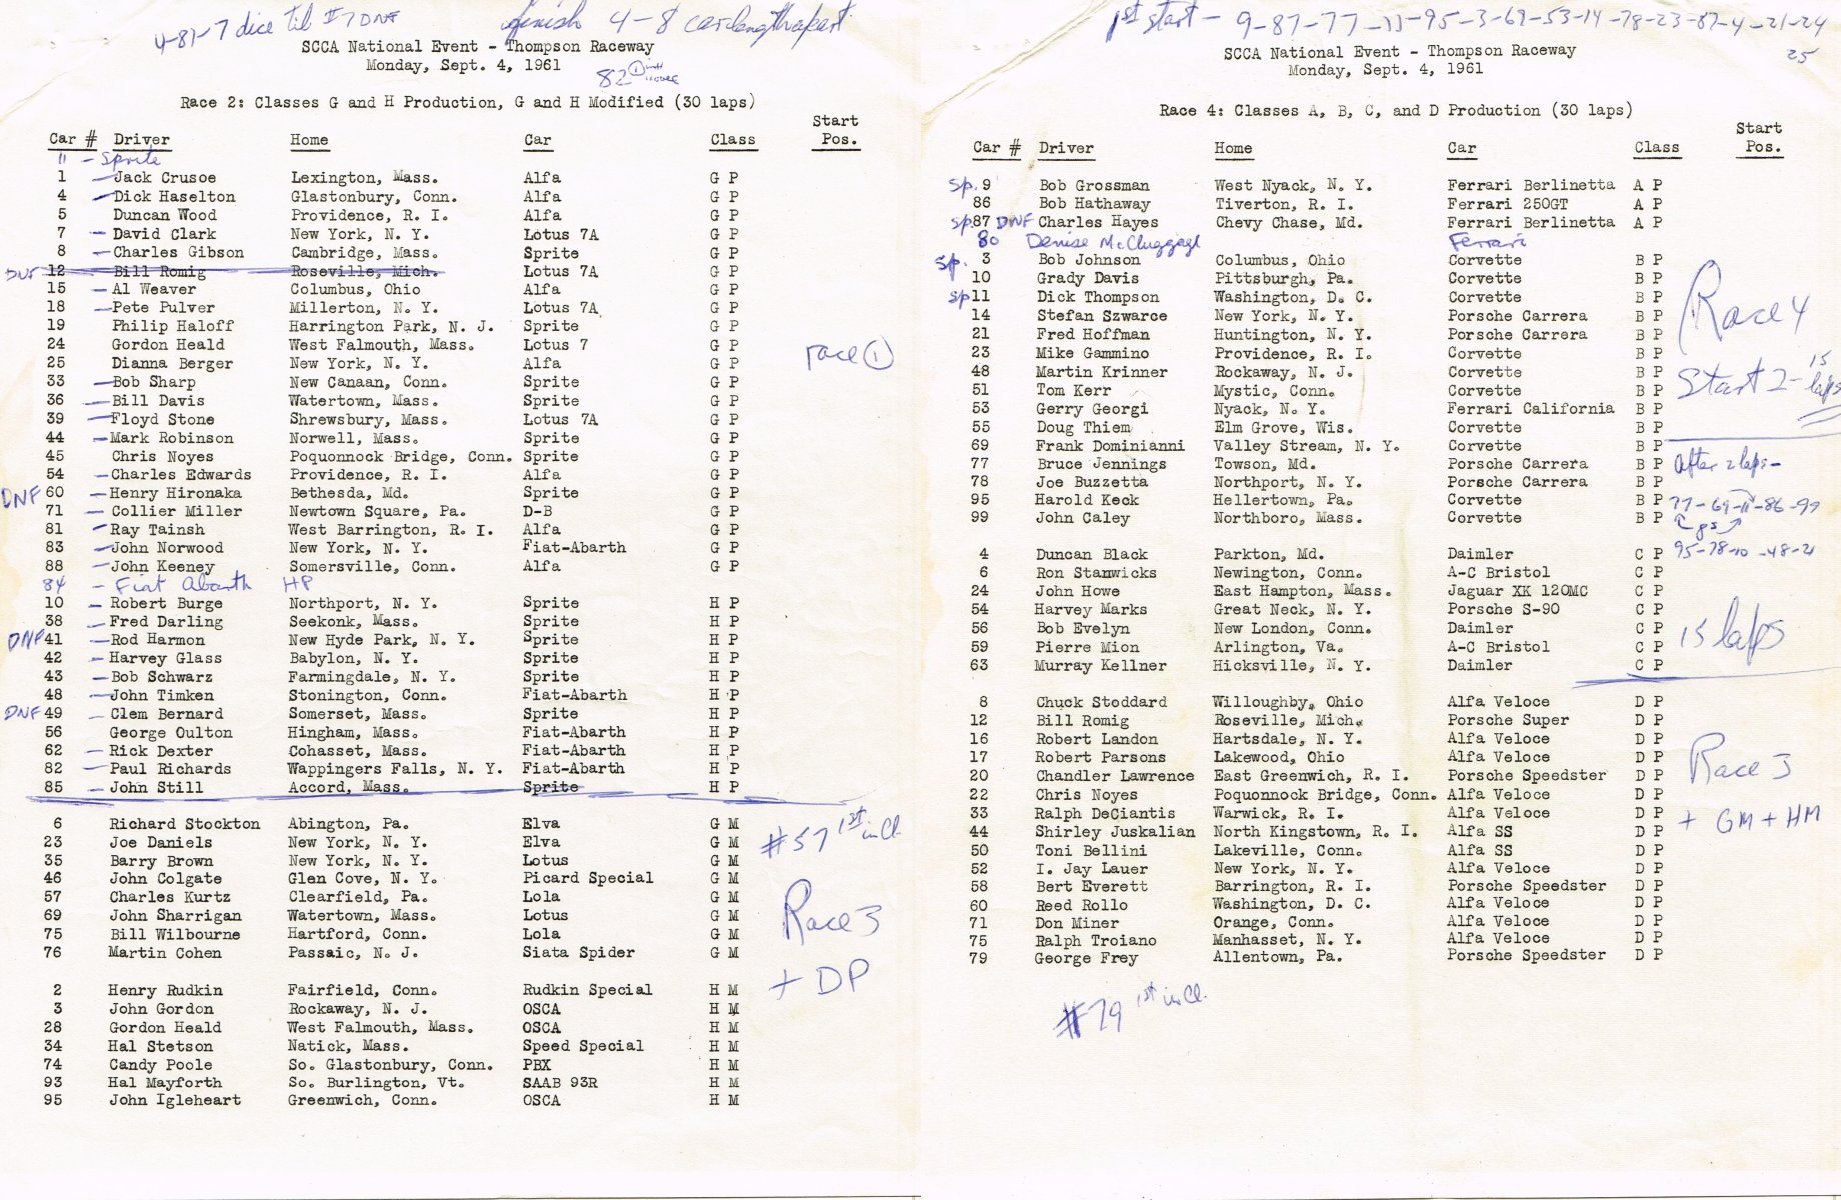 4-81-7 dice til #7 DNF finish 4-8 car lengths apart
SCCA National Event - Thompson Raceway
Monday, Sept. 4, 1961
82 ①
Race 2: Classes G and H Production, G and H Modified (30 laps)
Start
Car # Driver Home Car Class Pos.
11 - Sprite
1 - Jack Crusoe Lexington, Mass. Alfa G P
4 - Dick Haselton Glastonbury, Conn. Alfa G P
5 Duncan Wood Providence, R. I. Alfa G P
7 - David Clark New York, N. Y. Lotus 7A G P
8 - Charles Gibson Cambridge, Mass. Sprite G P
DNF 12 - Bill Romig Roseville, Mich. Lotus 7A G P
15 - Al Weaver Columbus, Ohio Alfa G P
18 - Pete Pulver Millerton, N. Y. Lotus 7A G P
19 Philip Haloff Harrington Park, N. J. Sprite G P
24 Gordon Heald West Falmouth, Mass. Lotus 7 G P
race ①
25 Dianna Berger New York, N. Y. Alfa G P
33 - Bob Sharp New Canaan, Conn. Sprite G P
36 - Bill Davis Watertown, Mass. Sprite G P
39 - Floyd Stone Shrewsbury, Mass. Lotus 7A G P
44 - Mark Robinson Norwell, Mass. Sprite G P
45 Chris Noyes Poquonnock Bridge, Conn. Sprite G P
54 - Charles Edwards Providence, R. I. Alfa G P
DNF 60 - Henry Hironaka Bethesda, Md. Sprite G P
71 - Collier Miller Newtown Square, Pa. D-B G P
81 - Ray Tainsh West Barrington, R. I. Alfa G P
83 - John Norwood New York, N. Y. Fiat-Abarth G P
88 - John Keeney Somersville, Conn. Alfa G P
84 - Fiat Abarth HP
10 - Robert Burge Northport, N. Y. Sprite H P
38 - Fred Darling Seekonk, Mass. Sprite H P
DNF 41 - Rod Harmon New Hyde Park, N. Y. Sprite H P
42 - Harvey Glass Babylon, N. Y. Sprite H P
43 - Bob Schwarz Farmingdale, N. Y. Sprite H P
48 - John Timken Stonington, Conn. Fiat-Abarth H P
DNF 49 - Clem Bernard Somerset, Mass. Sprite H P
56 George Oulton Hingham, Mass. Fiat-Abarth H P
62 - Rick Dexter Cohasset, Mass. Fiat-Abarth H P
82 - Paul Richards Wappingers Falls, N. Y. Fiat-Abarth H P
85 - John Still Accord, Mass. Sprite H P
6 Richard Stockton Abington, Pa. Elva G M
#57 1st in Cl.
23 Joe Daniels New York, N. Y. Elva G M
35 Barry Brown New York, N. Y. Lotus G M
46 John Colgate Glen Cove, N. Y. Picard Special G M
57 Charles Kurtz Clearfield, Pa. Lola G M
69 John Sharrigan Watertown, Mass. Lotus G M
Race 3
75 Bill Wilbourne Hartford, Conn. Lola G M
76 Martin Cohen Passaic, N. J. Siata Spider G M
+ DP
2 Henry Rudkin Fairfield, Conn. Rudkin Special H M
3 John Gordon Rockaway, N. J. OSCA H M
28 Gordon Heald West Falmouth, Mass. OSCA H M
34 Hal Stetson Natick, Mass. Speed Special H M
74 Candy Poole So. Glastonbury, Conn. PBX H M
93 Hal Mayforth So. Burlington, Vt. SAAB 93R H M
95 John Igleheart Greenwich, Conn. OSCA H M
1st start - 9-87-77-11-95-3-69-53-14-78-23-87-4-21-24
25
SCCA National Event - Thompson Raceway
Monday, Sept. 4, 1961
Race 4: Classes A, B, C, and D Production (30 laps)
Start
Car # Driver Home Car Class Pos.
Sp. 9 Bob Grossman West Nyack, N. Y. Ferrari Berlinetta A P
86 Bob Hathaway Tiverton, R. I. Ferrari 250GT A P
Sp. 87 DNF Charles Hayes Chevy Chase, Md. Ferrari Berlinetta A P
80 Denise McCluggage Ferrari
Sp. 3 Bob Johnson Columbus, Ohio Corvette B P
10 Grady Davis Pittsburgh, Pa. Corvette B P
Sp 11 Dick Thompson Washington, D. C. Corvette B P
14 Stefan Szwarce New York, N. Y. Porsche Carrera B P
Race 4
21 Fred Hoffman Huntington, N. Y. Porsche Carrera B P
23 Mike Gammino Providence, R. I. Corvette B P
48 Martin Krinner Rockaway, N. J. Corvette B P
Start 2 - 15 laps
51 Tom Kerr Mystic, Conn. Corvette B P
53 Gerry Georgi Nyack, N. Y. Ferrari California B P
55 Doug Thiem Elm Grove, Wis. Corvette B P
69 Frank Dominianni Valley Stream, N. Y. Corvette B P
77 Bruce Jennings Towson, Md. Porsche Carrera B P
After 2 laps -
78 Joe Buzzetta Northport, N. Y. Porsche Carrera B P
95 Harold Keck Hellertown, Pa. Corvette B P
77-69-11-86-99
99 John Caley Northboro, Mass. Corvette B P
95-78-10-48-21
4 Duncan Black Parkton, Md. Daimler C P
6 Ron Stanwicks Newington, Conn. A-C Bristol C P
24 John Howe East Hampton, Mass. Jaguar XK 120MC C P
54 Harvey Marks Great Neck, N. Y. Porsche S-90 C P
56 Bob Evelyn New London, Conn. Daimler C P
15 laps
59 Pierre Mion Arlington, Va. A-C Bristol C P
63 Murray Kellner Hicksville, N. Y. Daimler C P
8 Chuck Stoddard Willoughby, Ohio Alfa Veloce D P
12 Bill Romig Roseville, Mich. Porsche Super D P
16 Robert Landon Hartsdale, N. Y. Alfa Veloce D P
17 Robert Parsons Lakewood, Ohio Alfa Veloce D P
Race 3
20 Chandler Lawrence East Greenwich, R. I. Porsche Speedster D P
22 Chris Noyes Poquonnock Bridge, Conn. Alfa Veloce D P
33 Ralph DeCiantis Warwick, R. I. Alfa Veloce D P
+ GM + HM
44 Shirley Juskalian North Kingstown, R. I. Alfa SS D P
50 Toni Bellini Lakeville, Conn. Alfa SS D P
52 I. Jay Lauer New York, N. Y. Alfa Veloce D P
58 Bert Everett Barrington, R. I. Porsche Speedster D P
60 Reed Rollo Washington, D. C. Alfa Veloce D P
71 Don Miner Orange, Conn. Alfa Veloce D P
75 Ralph Troiano Manhasset, N. Y. Alfa Veloce D P
79 George Frey Allentown, Pa. Porsche Speedster D P
#79 1st in Cl.